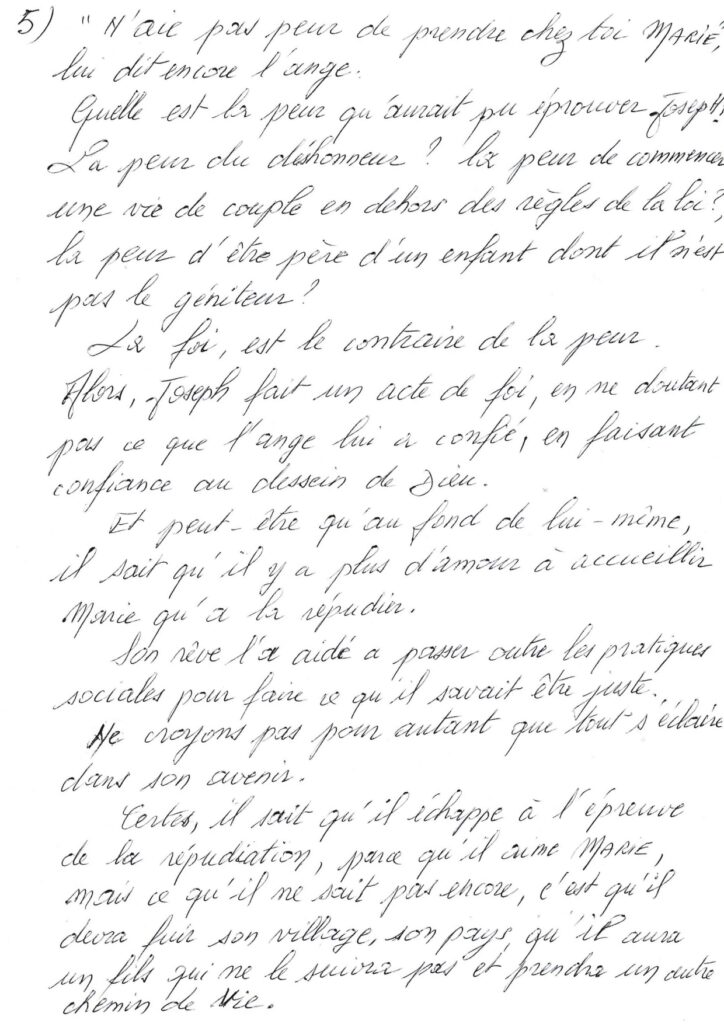 5) "N'aie pas peur de prendre chez toi MARIE,
lui dit encore l'ange.
Quelle est la peur qu'aurait pu éprouver Joseph!
La peur du déshonneur ? la peur de commencer
une vie de couple en dehors des règles de la loi?,
la peur d'être père d'un enfant dont il n'est
pas le géniteur?
La foi, est le contraire de la peur.
Alors, Joseph fait un acte de foi, en ne doutant
pas ce que l'ange lui a confié, en faisant
confiance au dessein de Dieu.
Et peut-être qu'au fond de lui-même,
il sait qu'il y a plus d'amour à accueillir
Marie qu'a la répudier.
Son rêve l'a aidé a passer outre les pratiques
sociales pour faire ce qu'il savait être juste.
Ne croyons pas pour autant que tout s'éclaire
dans son avenir.
Certes, il sait qu'il échappe à l'épreuve
de la répudiation, parce qu'il aime MARIE,
mais ce qu'il ne sait pas encore, c'est qu'il
devra fuir son village, son pays, qu'il aura
un fils qui ne le suivra pas et prendra un autre
chemin de Vie.